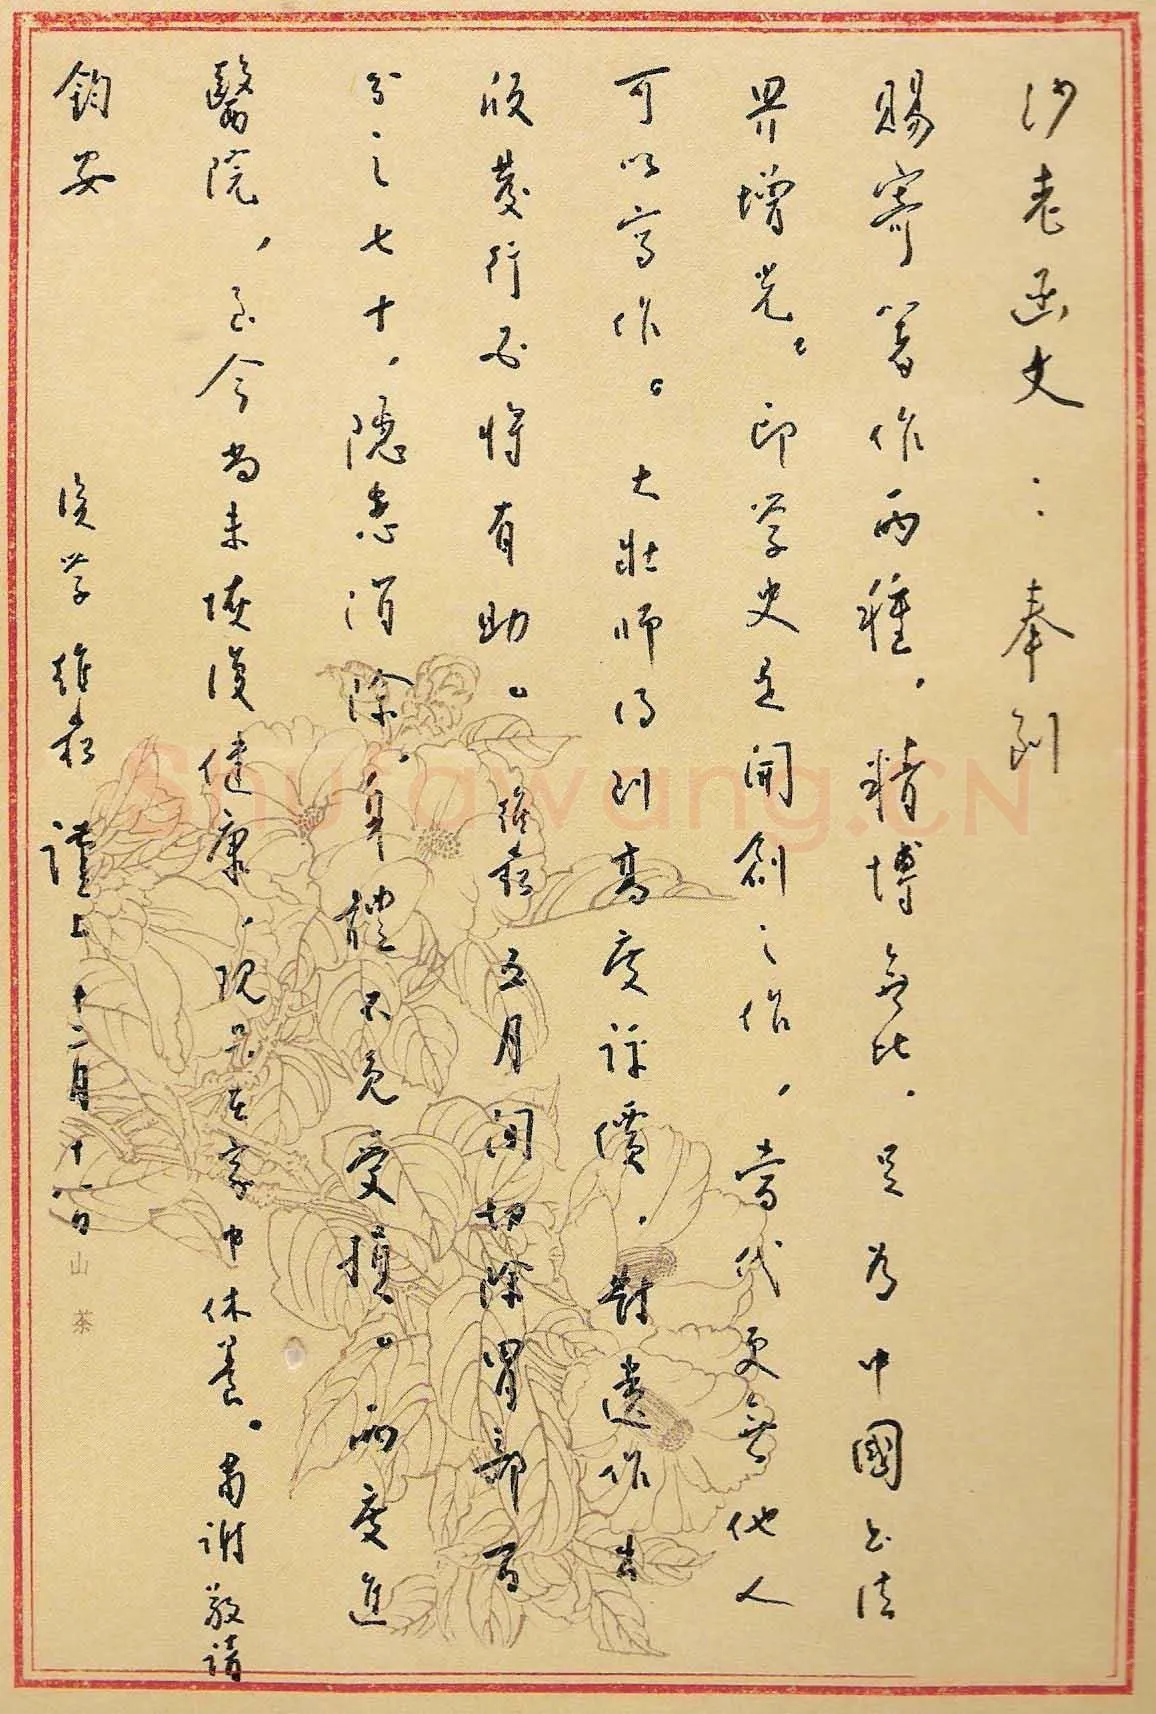 沙老函丈：奉到
賜寄著作兩種，精博無比，足为中國书法
界增光。印学史是開創之作，當代更無他人
可以寫作。大壯師得到高度評價，對遺作出
版發行必將有助。維崧五月間切除胃部百
分之七十，隐患消除。身體不免受損。兩度進
醫院，至今尚未恢復健康，現是在家中休養。肅謝敬請
鈞安
後学維崧謹上十二月十一日
山茶
Shufawang.CN